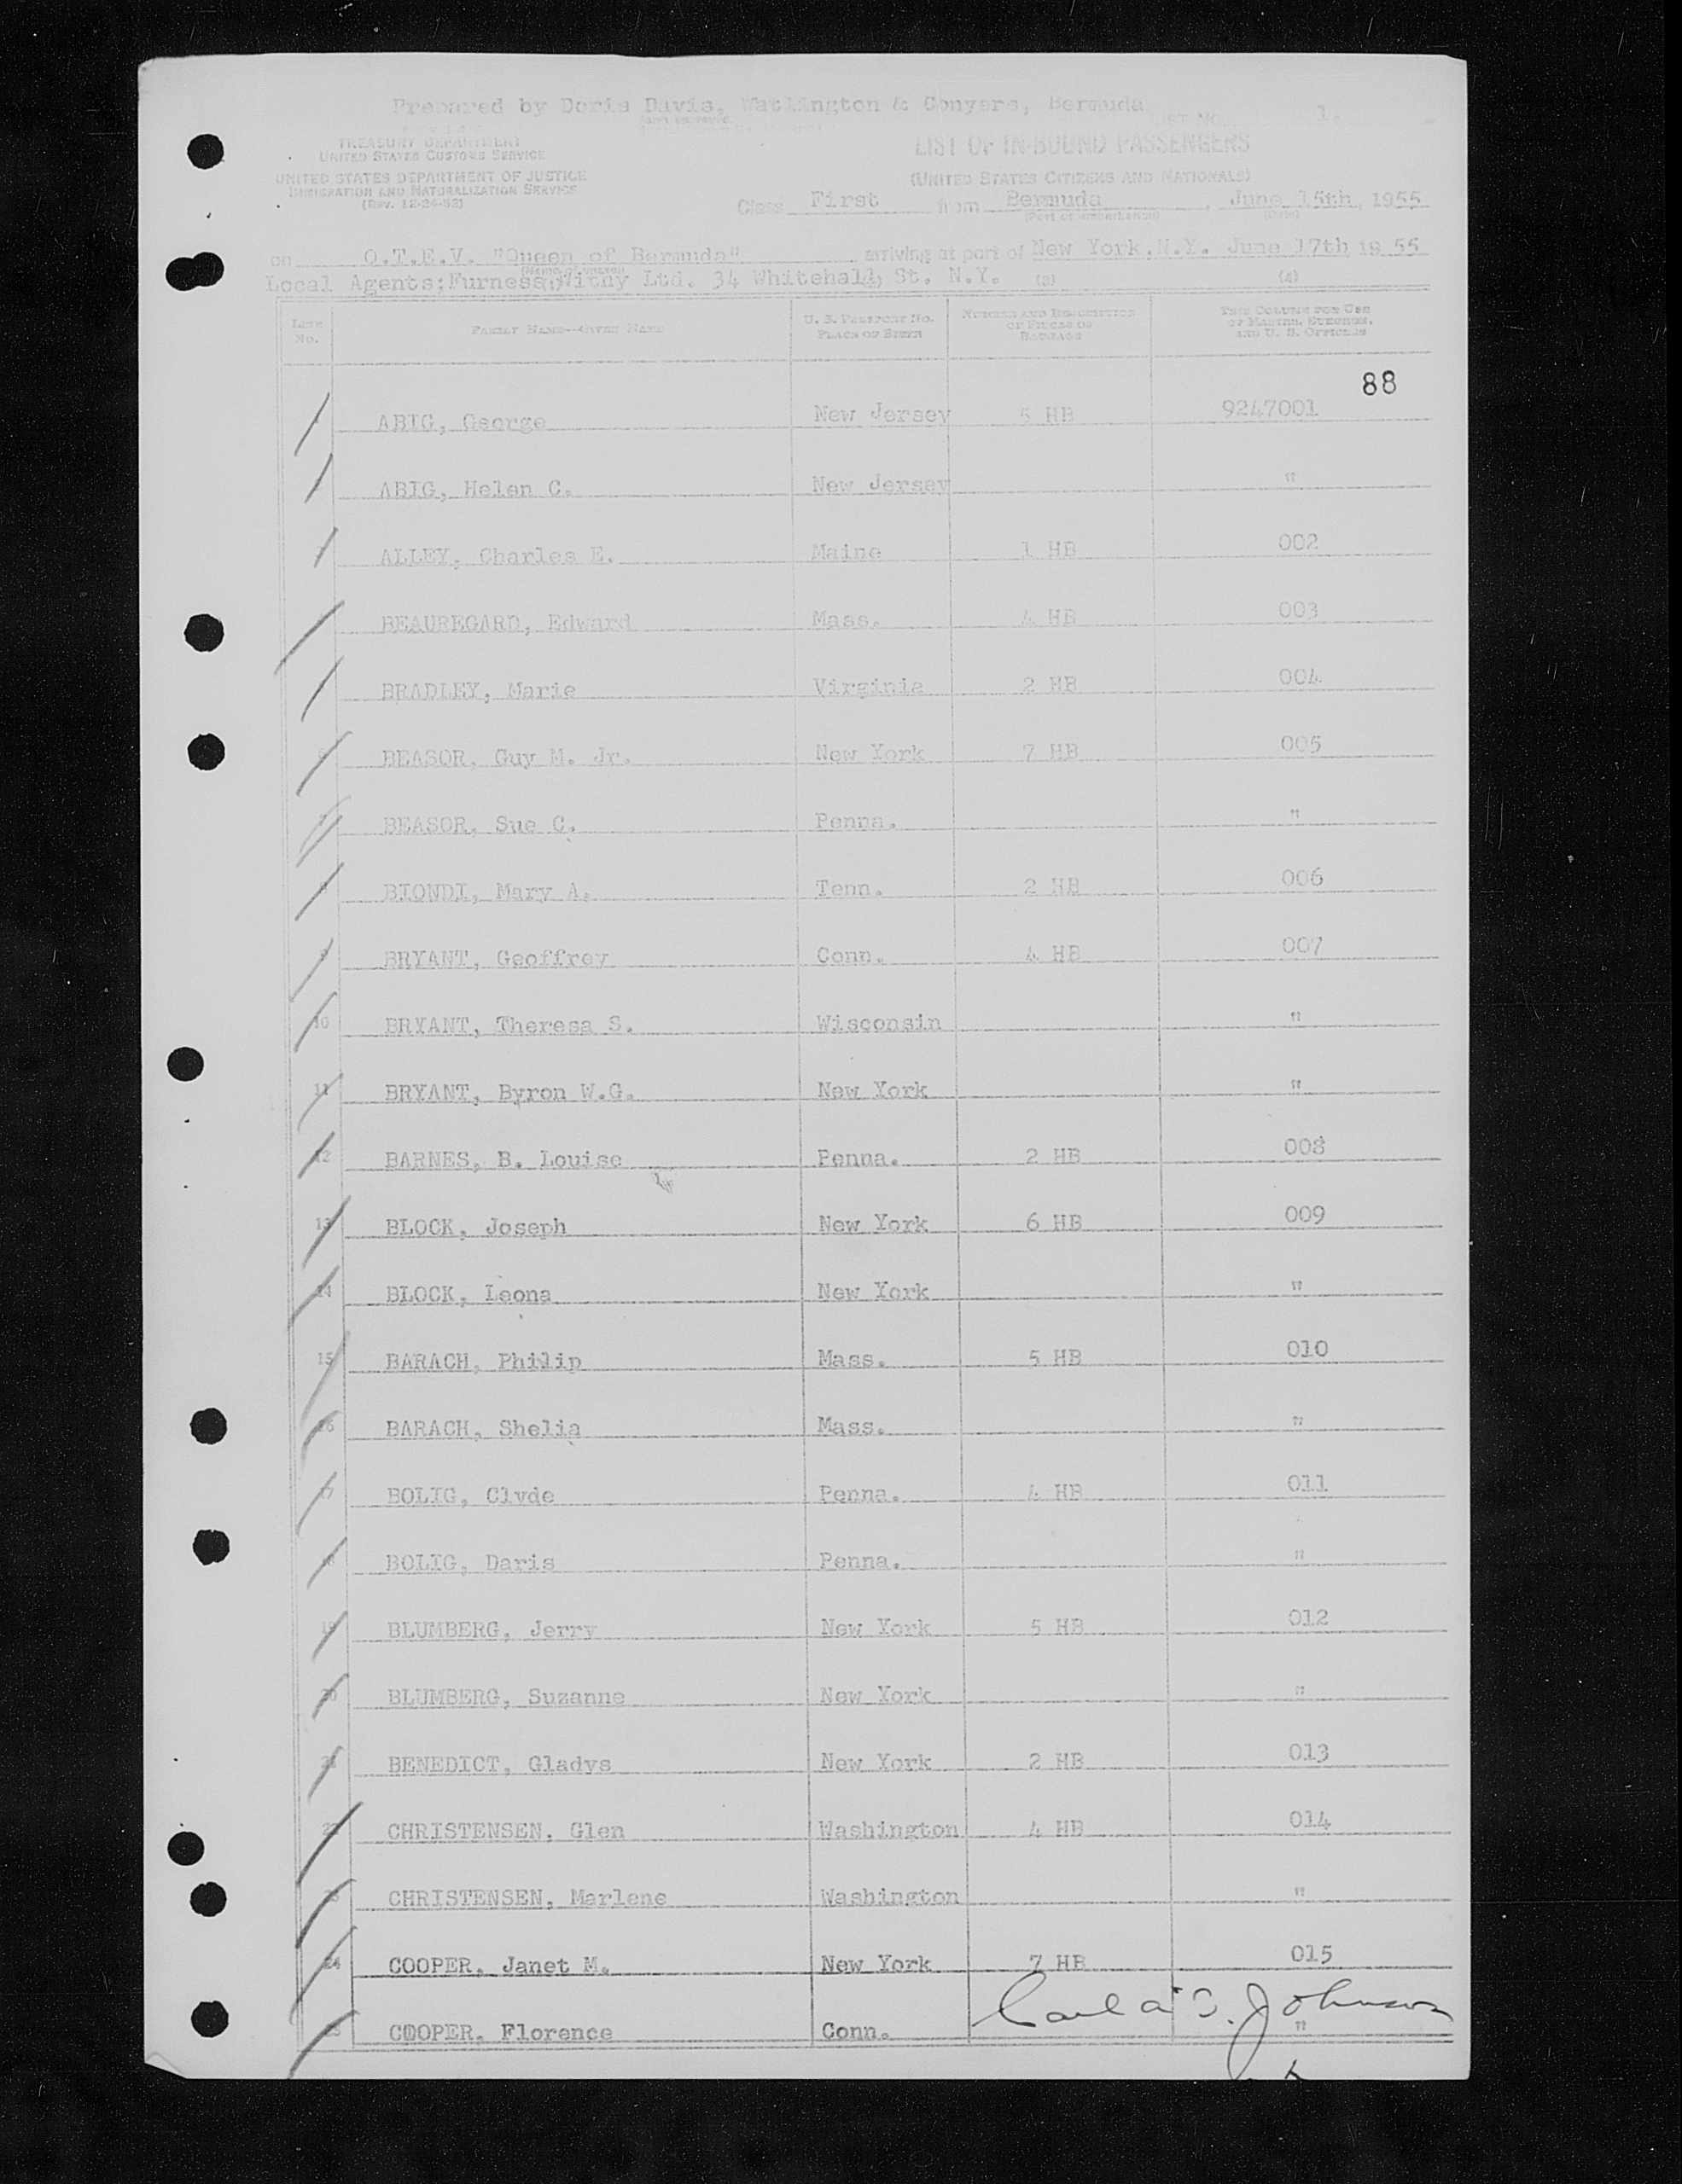 Prepared by Doris Davis, Watlington & Conyers, Bermuda
LIST NO. 1.
TREASURY DEPARTMENT
UNITED STATES CUSTOMS SERVICE
UNITED STATES DEPARTMENT OF JUSTICE
IMMIGRATION AND NATURALIZATION SERVICE
(Rev. 12-24-52)
LIST OF IN-BOUND PASSENGERS
(UNITED STATES CITIZENS AND NATIONALS)
Class First from Bermuda, June 15th, 1955
(Port of embarkation) (Date)
on Q.T.E.V. "Queen of Bermuda" arriving at port of New York, N.Y. June 17th 1955
(Name of vessel)
Local Agents: Furness Withy Ltd. 34 Whitehall St. N.Y.
(1) (2) (3) (4)
LINE No. FAMILY NAME—GIVEN NAME U. S. PASSPORT NO. PLACE OF BIRTH NUMBER AND DESCRIPTION OF PIECES OF BAGGAGE THIS COLUMN FOR USE OF MASTER, SURGEON, AND U. S. OFFICERS
88
ABIG, George New Jersey 5 HB 9247001
ABIG, Helen C. New Jersey "
ALLEY, Charles E. Maine 1 HB 002
BEAUREGARD, Edward Mass. 4 HB 003
BRADLEY, Marie Virginia 2 HB 004
6 BEASOR, Guy M. Jr. New York 7 HB 005
7 BEASOR, Sue C. Penna. "
8 BIONDI, Mary A. Tenn. 2 HB 006
9 BRYANT, Geoffrey Conn. 4 HB 007
10 BRYANT, Theresa S. Wisconsin "
11 BRYANT, Byron W.G. New York "
12 BARNES, B. Louise Penna. 2 HB 008
13 BLOCK, Joseph New York 6 HB 009
14 BLOCK, Leona New York "
15 BARACH, Philip Mass. 5 HB 010
16 BARACH, Shelia Mass. "
17 BOLIG, Clyde Penna. 4 HB 011
18 BOLIG, Daris Penna. "
19 BLUMBERG, Jerry New York 5 HB 012
20 BLUMBERG, Suzanne New York "
21 BENEDICT, Gladys New York 2 HB 013
22 CHRISTENSEN, Glen Washington 4 HB 014
23 CHRISTENSEN, Marlene Washington "
24 COOPER, Janet M. New York 7 HB 015
25 COOPER, Florence Conn. "
Johnson